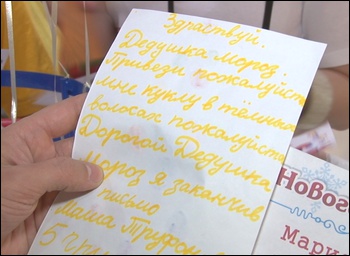 Здраствуй.
Дедушка мороз.
Приведи пожалуйст
мне куклу в тёмных
волосах пожалуйст
Дорогой Дедушка
Мороз я заканчив
письмо
Маша Труфон
5
Новог
Мари